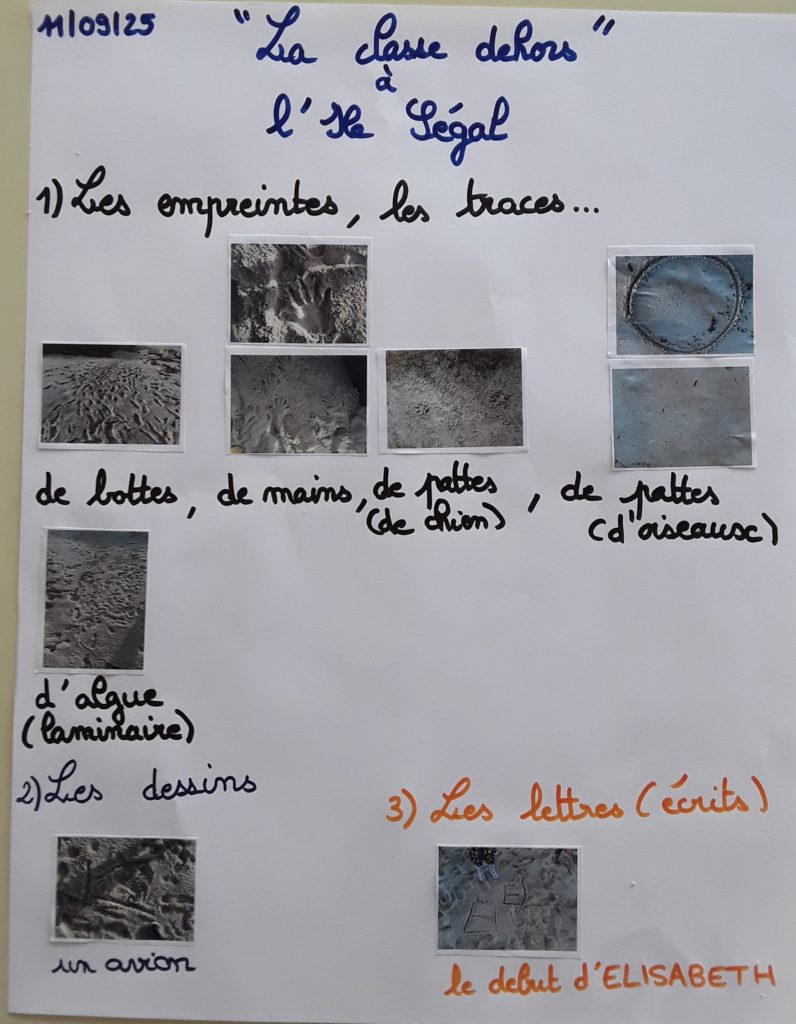 11/09/25
"La classe dehors"
à
l'Ile Ségal
1) Les empreintes, les traces...
de bottes, de mains, de pattes (de chien), de pattes (d'oiseaux)
d'algue
(laminaire)
2) Les dessins
3) Les lettres (écrits)
un avion
le debut d'ELISABETH